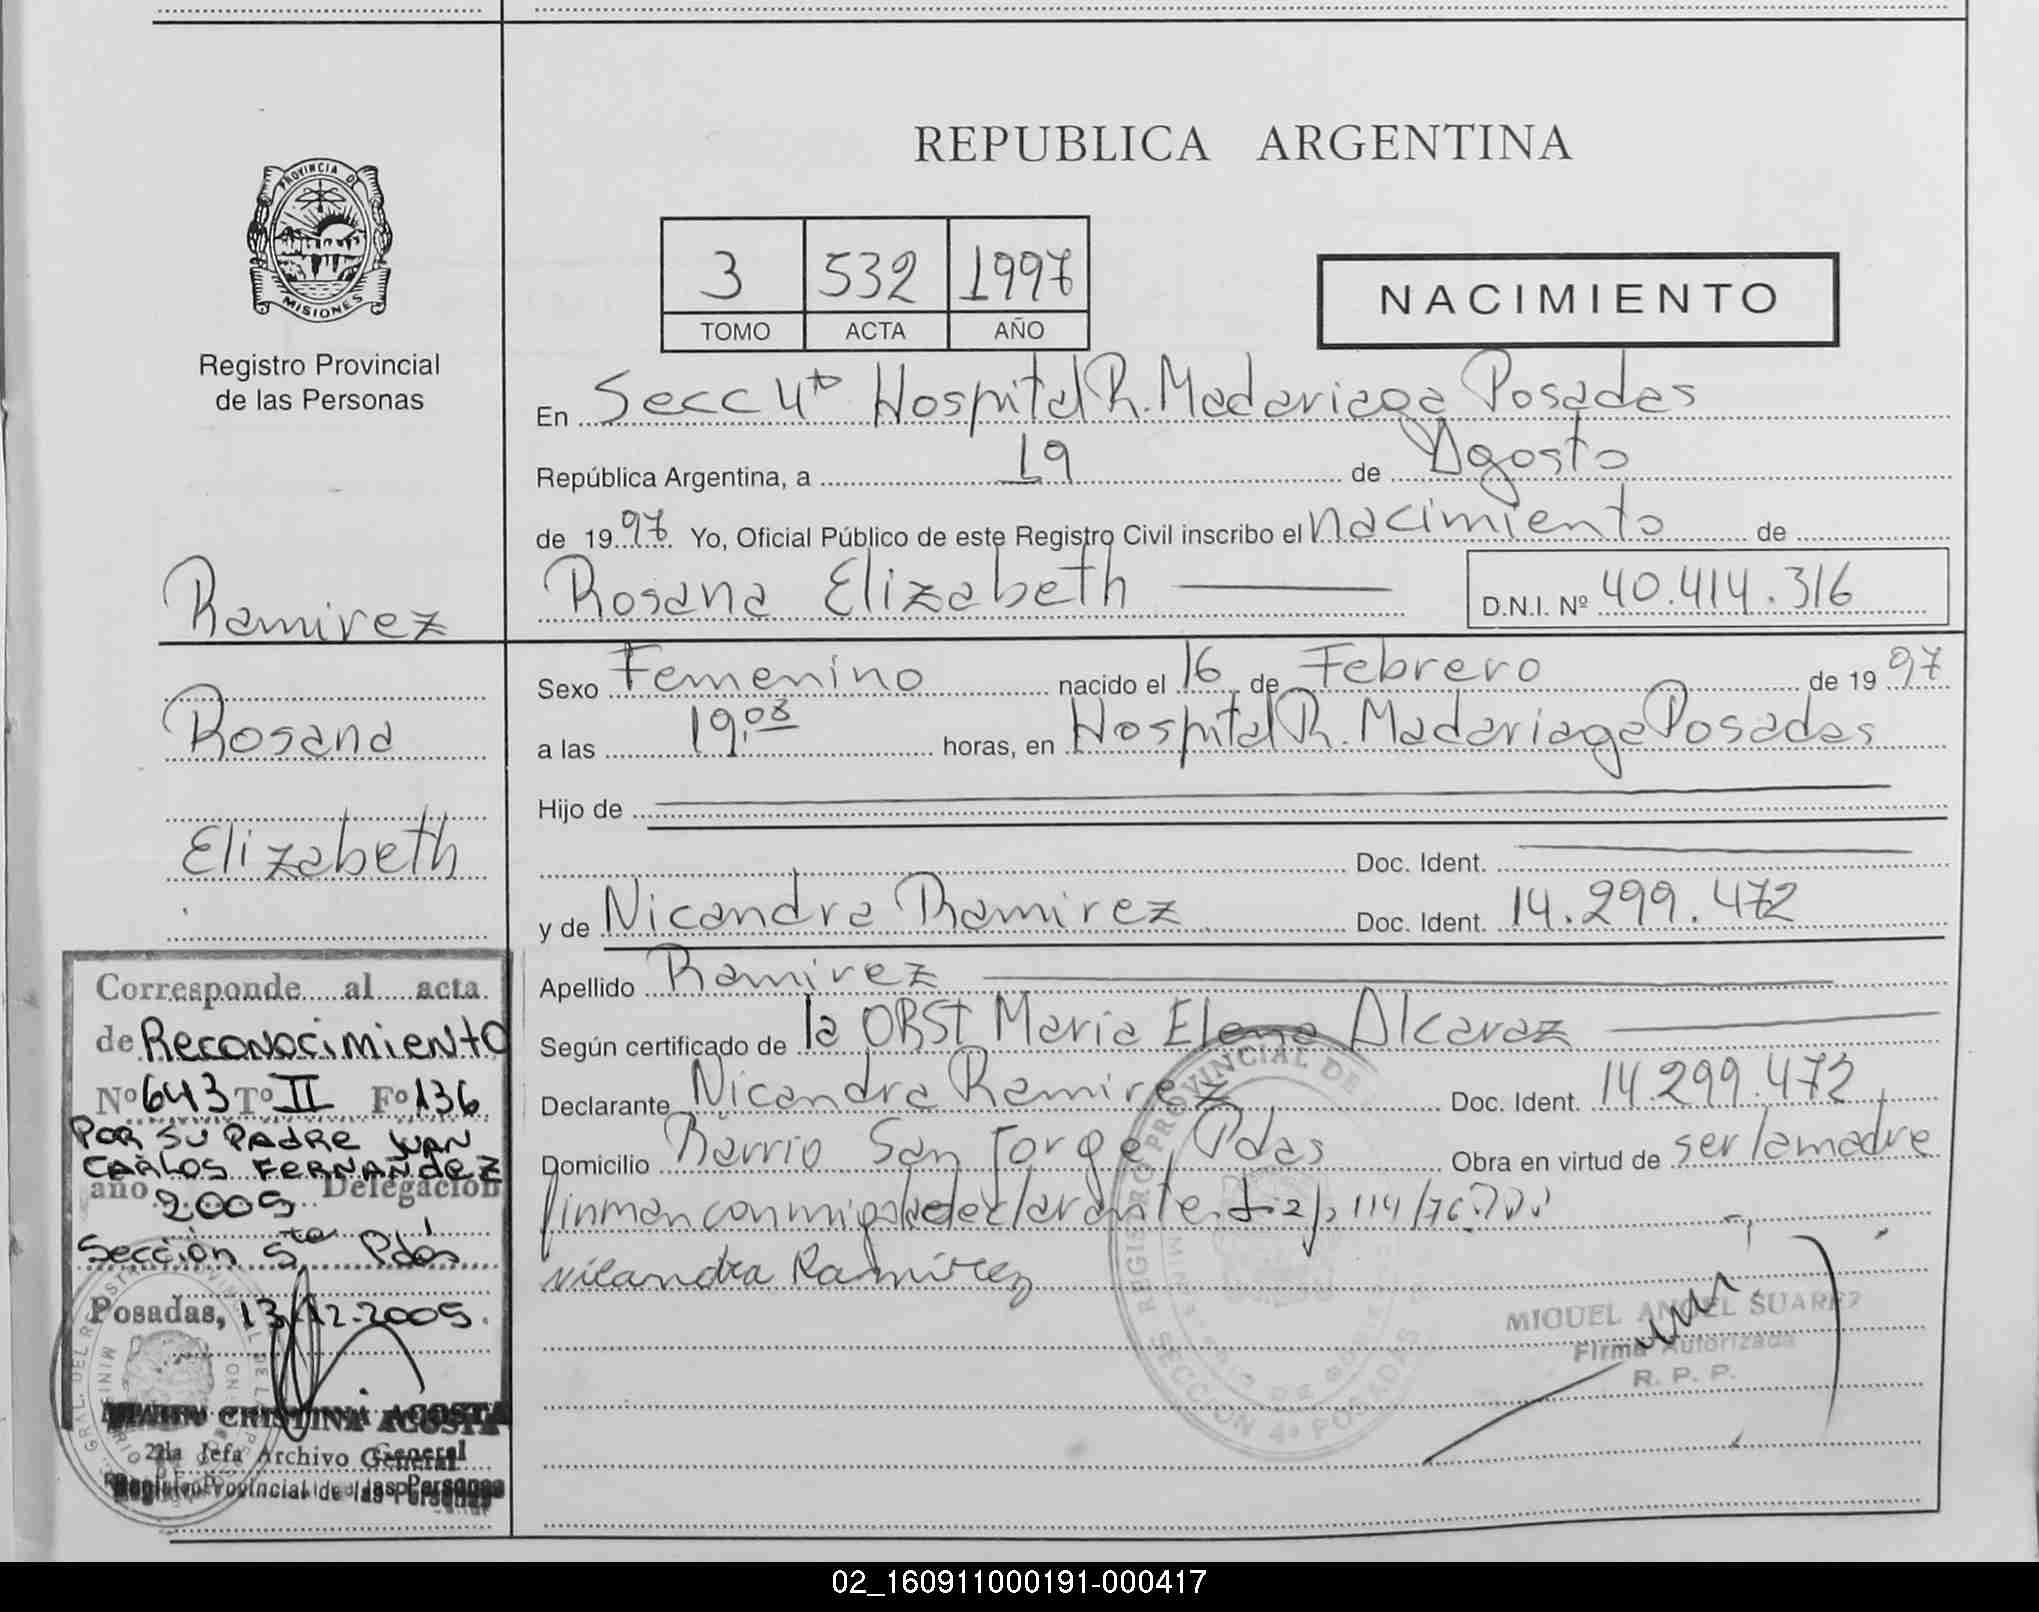 REPUBLICA ARGENTINA
PROVINCIA DE
MISIONES
Registro Provincial
de las Personas
3 532 1997
TOMO ACTA AÑO
NACIMIENTO
En Secc 4ta Hospital R. Madariaga Posadas
República Argentina, a 19 de Agosto
de 1997 Yo, Oficial Público de este Registro Civil inscribo el nacimiento de
Rosana Elizabeth D.N.I. Nº 40.414.316
Ramirez
Rosana
Elizabeth
Sexo Femenino nacido el 16 de Febrero de 1997
a las 19,08 horas, en Hospital R. Madariaga Posadas
Hijo de
Doc. Ident.
y de Nicandra Ramirez Doc. Ident. 14.299.472
Apellido Ramirez
Según certificado de la OBST Maria Elena Alcaraz
Declarante Nicandra Ramirez Doc. Ident. 14.299.472
Domicilio Barrio San Jorge, Pdas Obra en virtud de ser la madre
firman conmigo la declarante
Nicandra Ramirez
REGISTRO PROVINCIAL DE
SECCION 4ª POSADAS
MIGUEL ANGEL SUAREZ
Firma Autorizada
R. P. P.
Corresponde al acta
de Reconocimiento
Nº 643 Tº II Fº 136
POR SU PADRE JUAN
CARLOS FERNANDEZ
año 2005 Delegación
Sección 5ta Pdas
Posadas, 13/12.2005.
CRISTINA ACOSTA
2da Jefa Archivo General
Registro Provincial de las Personas
02_160911000191-000417